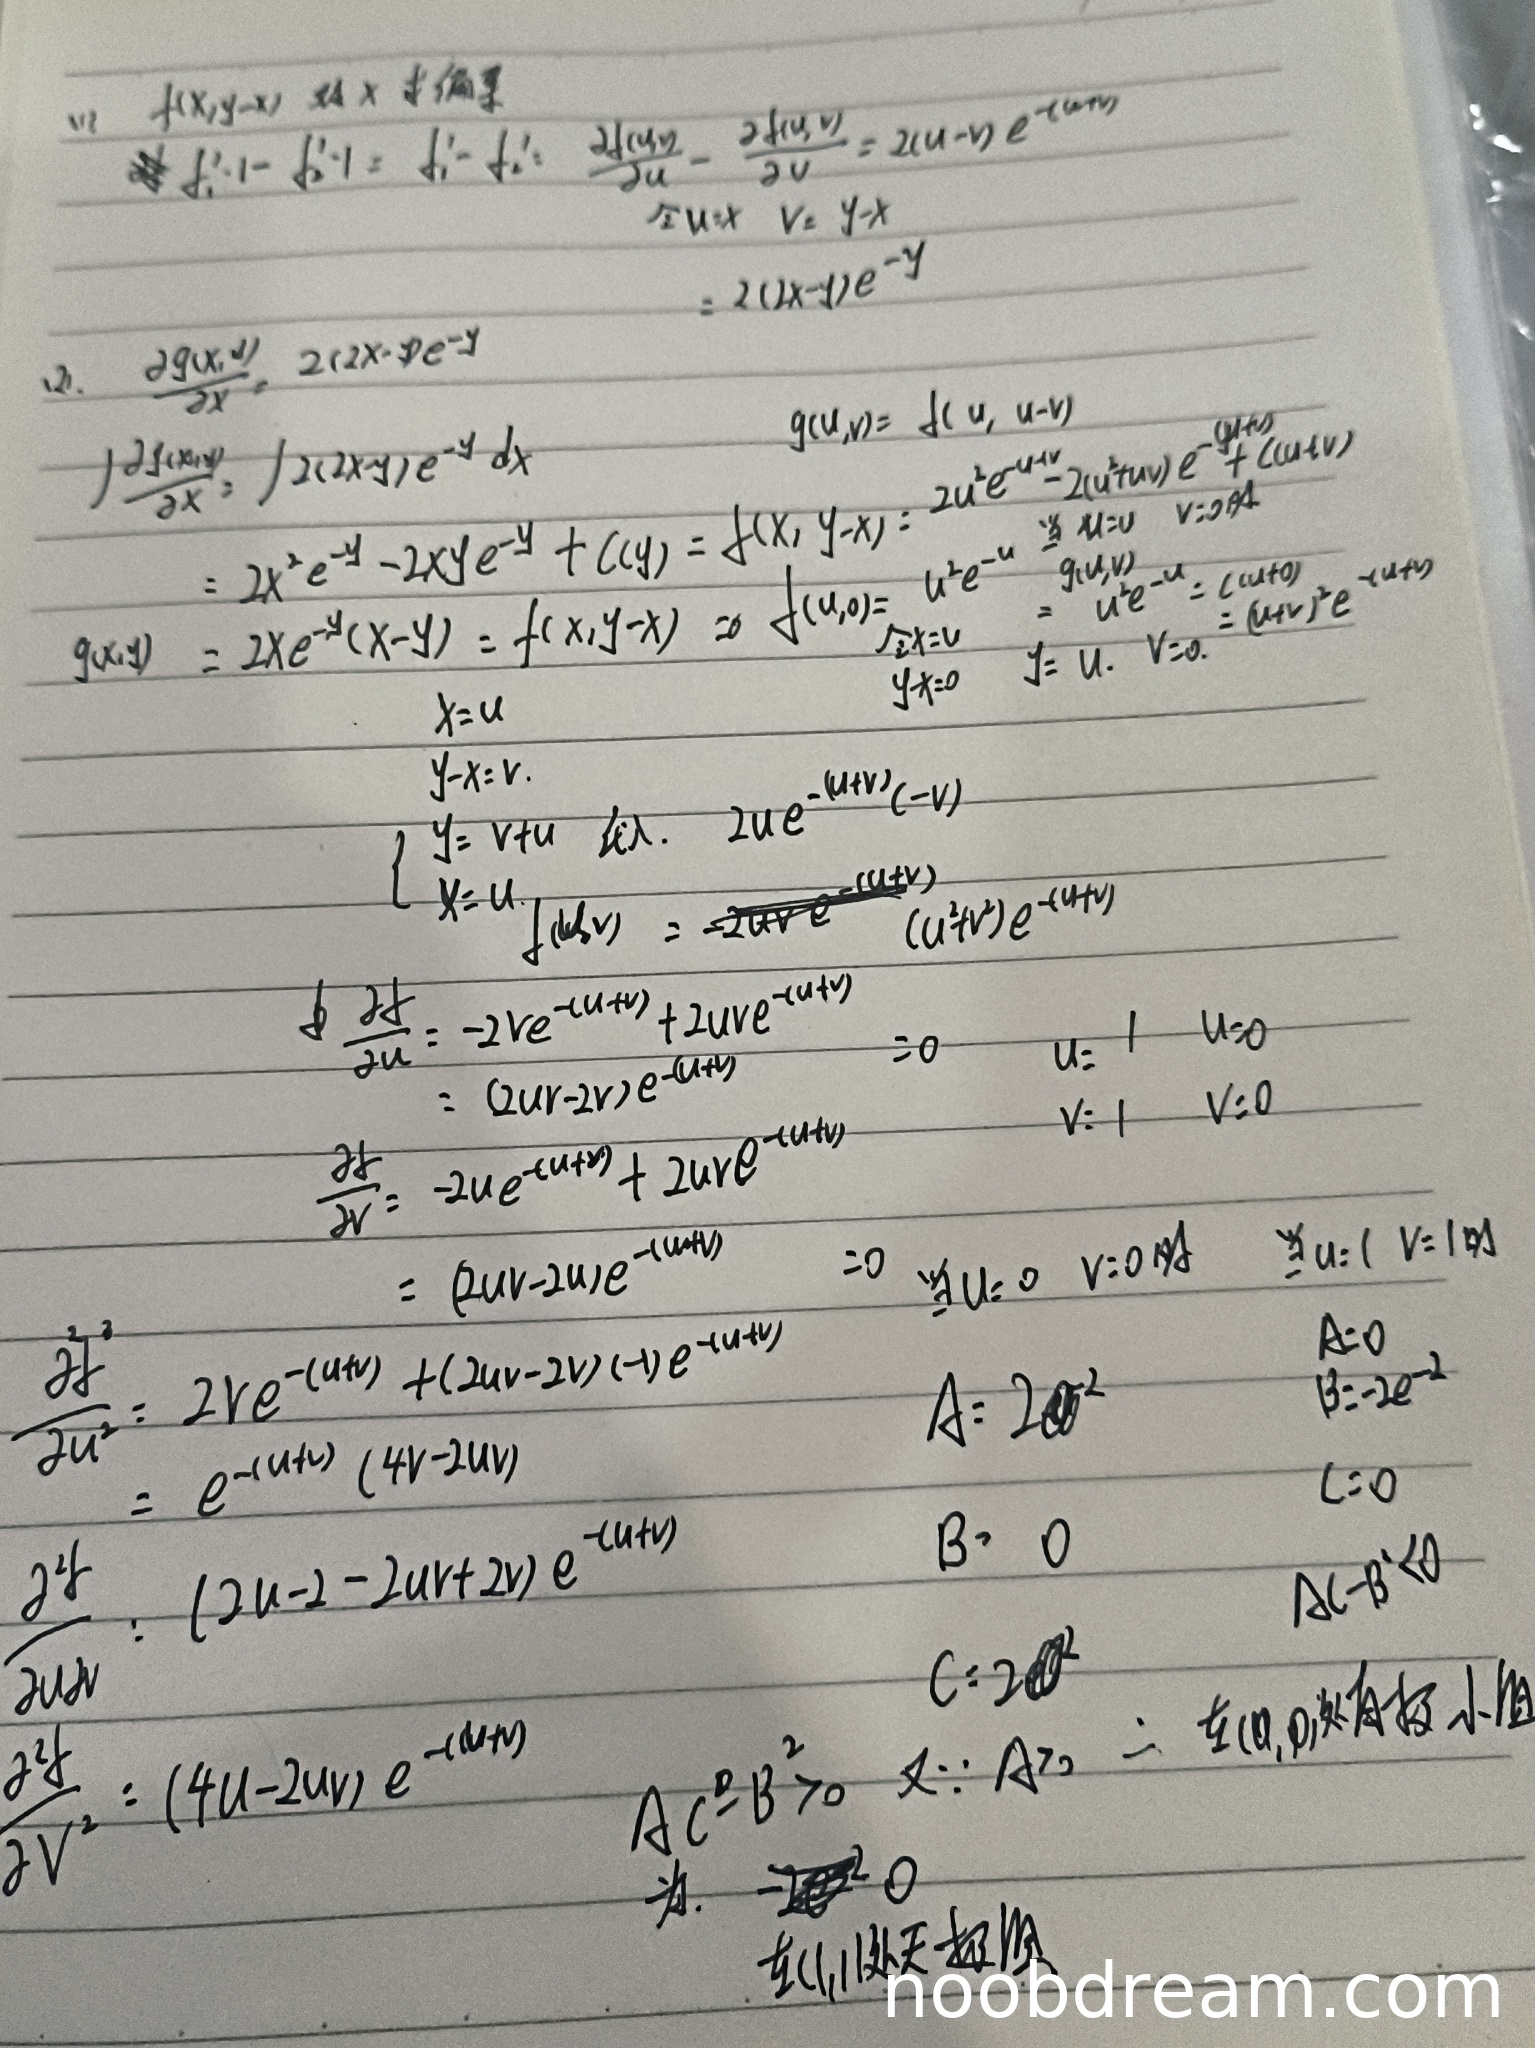 (1) f(x,y-x) 对 x 求偏导
f₁'·1 - f₂'·1 = f₁' - f₂' = ∂f(u,v)/∂u - ∂f(u,v)/∂v = 2(u-v)e^{-(u+v)}
令u=x v= y-x
= 2(2x-y)e^{-y}
(2). ∂g(x,y)/∂x = 2(2x-y)e^{-y}
g(u,v)= f(u, u-v)
∫∂g(x,y)/∂x = ∫2(2x-y)e^{-y} dx
= 2x²e^{-y} - 2xye^{-y} + C(y) = f(x, y-x) = 2u²e^{-u+v} - 2(u²+uv)e^{-(u+v)} + C(u+v)
当 u=0 v=0时
g(x,y) = 2xe^{-y}(x-y) = f(x,y-x) ⇒ f(u,0)= u²e^{-u}
g(u,v)
= u²e^{-u} = C(u+0)
= (u+v)²e^{-(u+v)}
令x=u
y-x=0
y= u. v=0.
x=u
y-x=v.
{ y= v+u 代入. 2ue^{-(u+v)}(-v)
x=u.
f(u,v) = (u²+v²)e^{-(u+v)}
∂f/∂u = -2ve^{-(u+v)} + 2uve^{-(u+v)}
= (2uv-2v)e^{-(u+v)} =0 u= 1 u=0
v= 1 v=0
∂f/∂v = -2ue^{-(u+v)} + 2uve^{-(u+v)}
= (2uv-2u)e^{-(u+v)} =0 当u=0 v=0时 当u=1 v=1时
∂²f/∂u² = 2ve^{-(u+v)} + (2uv-2v)(-1)e^{-(u+v)}
A=2
A=0
B=-2e^{-2}
= e^{-(u+v)} (4v-2uv)
C=0
∂²f/∂u∂v = (2u-2-2uv+2v)e^{-(u+v)}
B= 0
AC-B²<0
C=2
∂²f/∂v² = (4u-2uv)e^{-(u+v)}
AC-B²>0 又∵ A>0 ∴ 在(0,0)处有极小值
为. 0
在(1,1)处无极值
noobdream.com